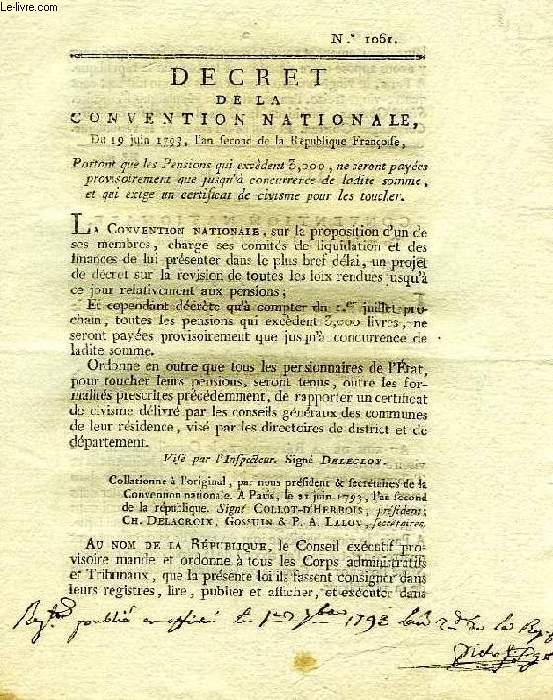 Le-livre.com
N.° 1061.
DECRET
DE LA
CONVENTION NATIONALE,
Du 19 juin 1793, l'an second de la République Françoise,
Portant que les Pensions qui excèdent 3,000, ne seront payées
provisoirement que jusqu'à concurrence de ladite somme,
et qui exige un certificat de civisme pour les toucher.
LA CONVENTION NATIONALE, sur la proposition d'un de
ses membres, charge ses comités de liquidation et des
finances de lui présenter dans le plus bref délai, un projet
de décret sur la revision de toutes les loix rendues jusqu'à
ce jour relativement aux pensions;
Et cependant décrète qu'à compter du 1.er juillet pro-
chain, toutes les pensions qui excèdent 3,000 livres, ne
seront payées provisoirement que jusqu'à concurrence de
ladite somme.
Ordonne en outre que tous les pensionnaires de l'État,
pour toucher leurs pensions, seront tenus, outre les for-
malités prescrites précédemment, de rapporter un certificat
de civisme délivré par les conseils généraux des communes
de leur résidence, visé par les directoires de district et de
département.
Visé par l'Inspecteur. Signé DELECLOY.
Collationné à l'original, par nous président & secrétaires de la
Convention nationale. A Paris, le 21 juin 1793, l'an second
de la république. Signé COLLOT-D'HERBOIS, président;
CH. DELACROIX, GOSSUIN & P. A. LALOY, secrétaires.
AU NOM DE LA RÉPUBLIQUE, le Conseil exécutif pro-
visoire mande et ordonne à tous les Corps administratifs
et Tribunaux, que la présente loi ils fassent consigner dans
leurs registres, lire, publier et afficher, et exécuter dans
publié 1793